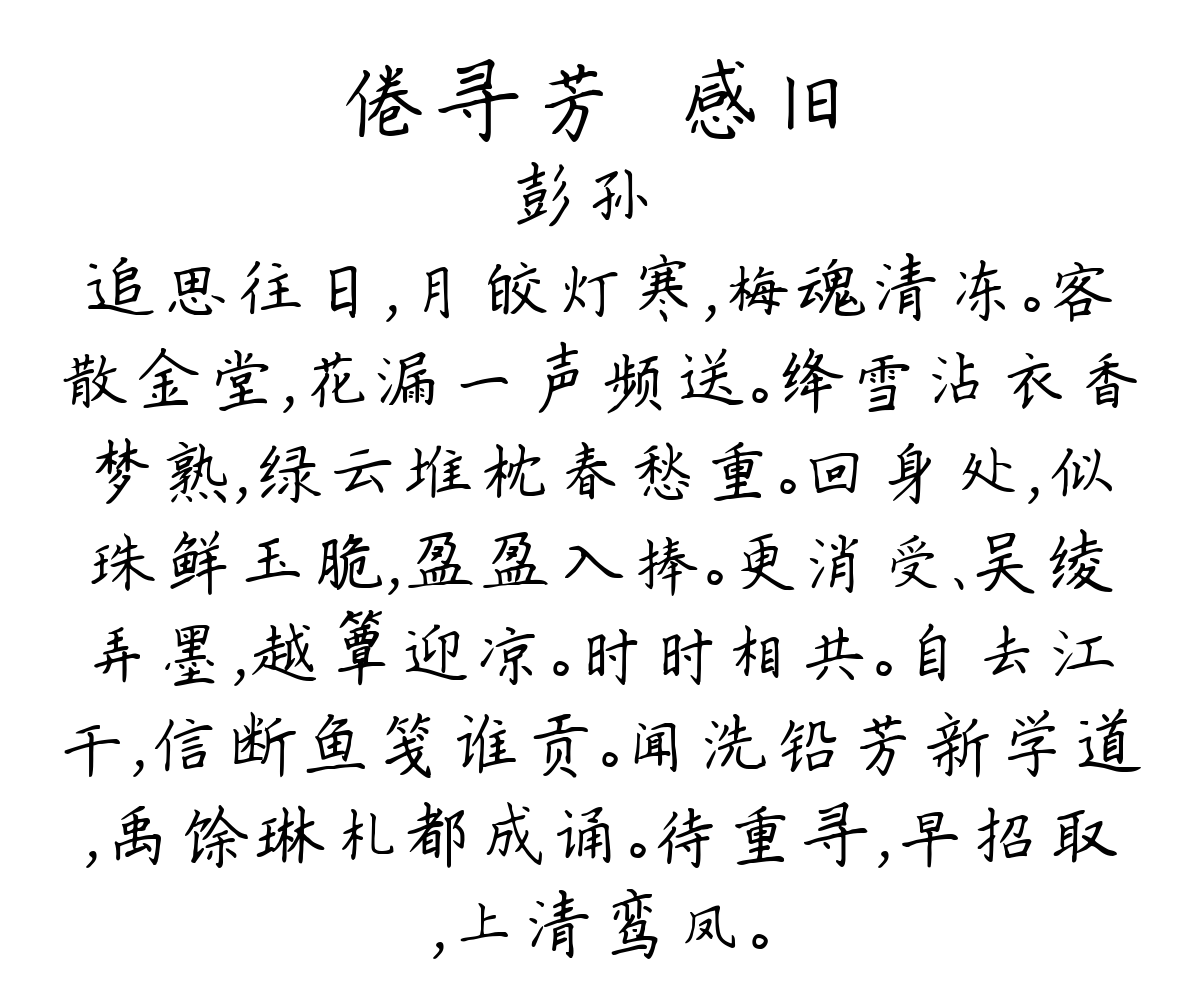 倦寻芳 感旧
彭孙
追思往日,月皎灯寒,梅魂清冻。客
散金堂,花漏一声频送。绛雪沾衣香
梦熟,绿云堆枕春愁重。回身处,似
珠鲜玉脆,盈盈入捧。更消受、吴绫
弄墨,越簟迎凉。时时相共。自去江
干,信断鱼笺谁贡。闻洗铅芳新学道
,禹馀琳札都成诵。待重寻,早招取
,上清鸾凤。